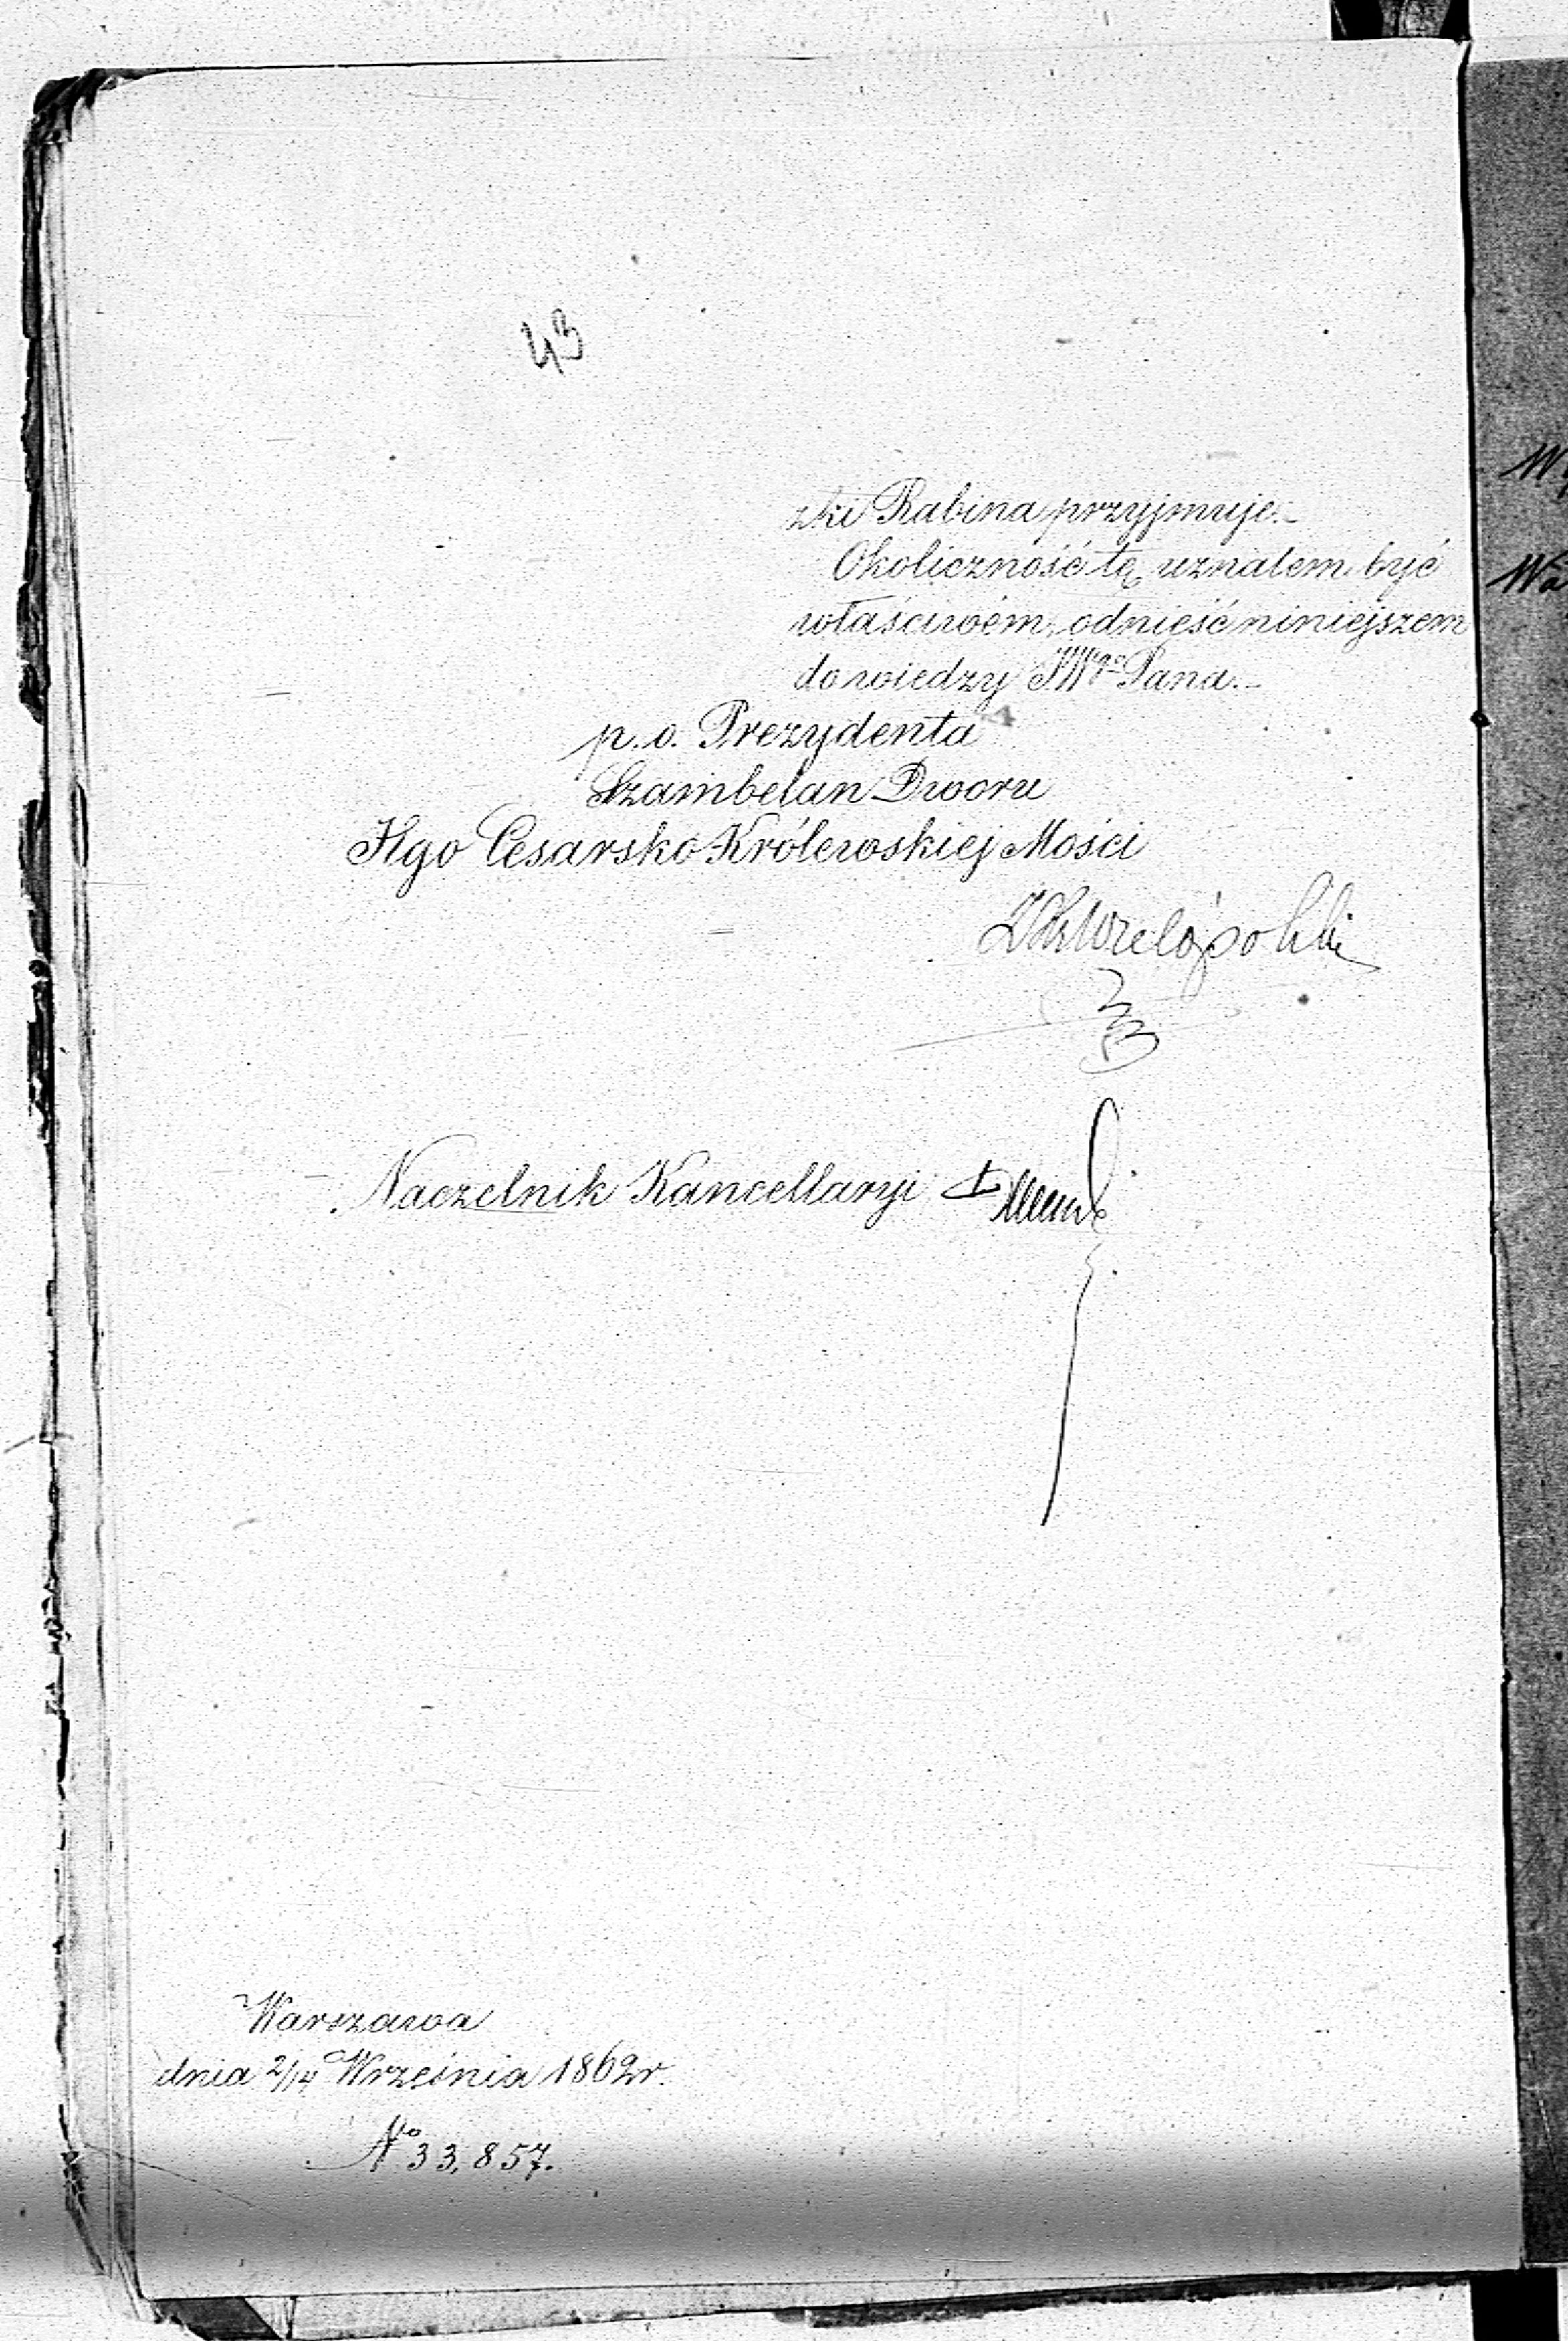 43
zki Rabina przyjmuje.
Okoliczność tę, uznałem być
właściwém, odnieść niniejszem
do wiedzy JWgo Pana.
p. o. Prezydenta
Szambelan Dworu
Jego Cesarsko-Królewskiej Mości
Wielopolski
Naczelnik Kancellaryi
Warszawa
dnia 2/14 Września 1862 r.
No 33,857.